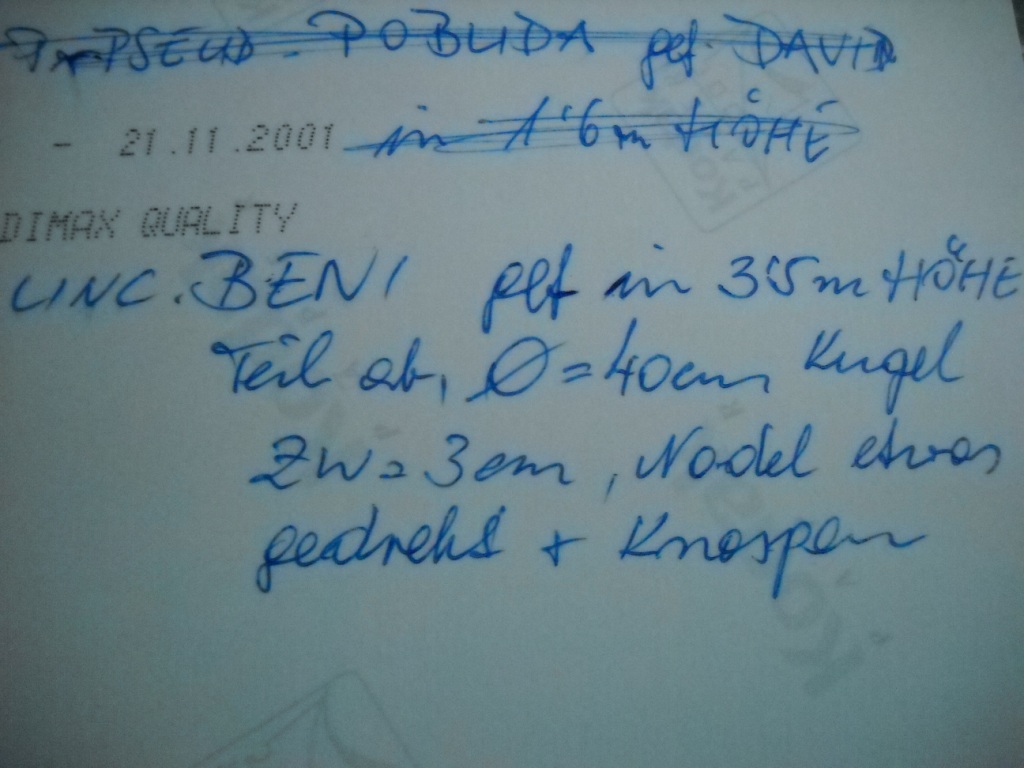 P. PSEUD. POBUDA gef. DAVID
- 21.11.2001 in 1'6m HÖHE
DIMAX QUALITY
UNC. BENI gef in 3'5m HÖHE
Teil ab, Ø = 40cm Kugel
ZW = 3cm, Nadel etwas
gedreht + Knospen